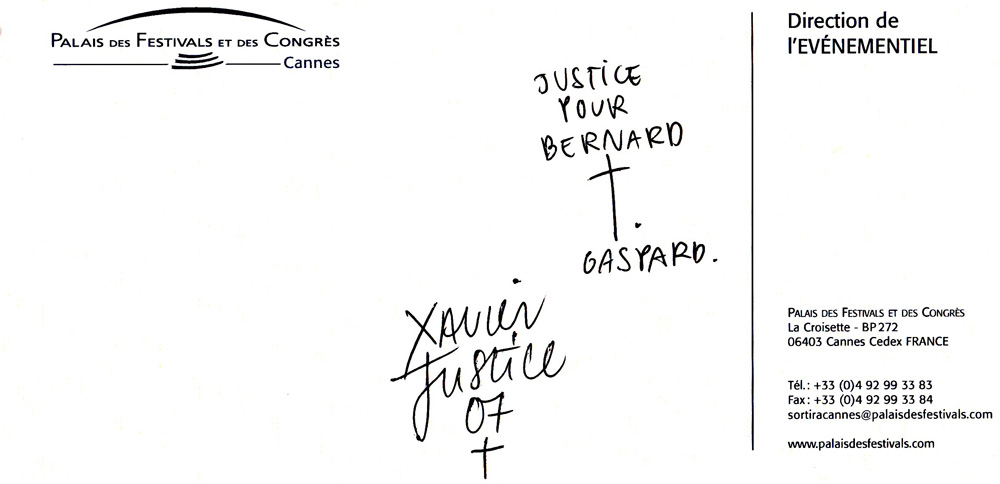 PALAIS DES FESTIVALS ET DES CONGRÈS
Cannes
Direction de
l'EVÉNEMENTIEL
JUSTICE
POUR
BERNARD
†.
GASPARD.
Xavier
Justice
07
†
PALAIS DES FESTIVALS ET DES CONGRÈS
La Croisette - BP 272
06403 Cannes Cedex FRANCE
Tél.: +33 (0)4 92 99 33 83
Fax: +33 (0)4 92 99 33 84
sortiracannes@palaisdesfestivals.com
www.palaisdesfestivals.com